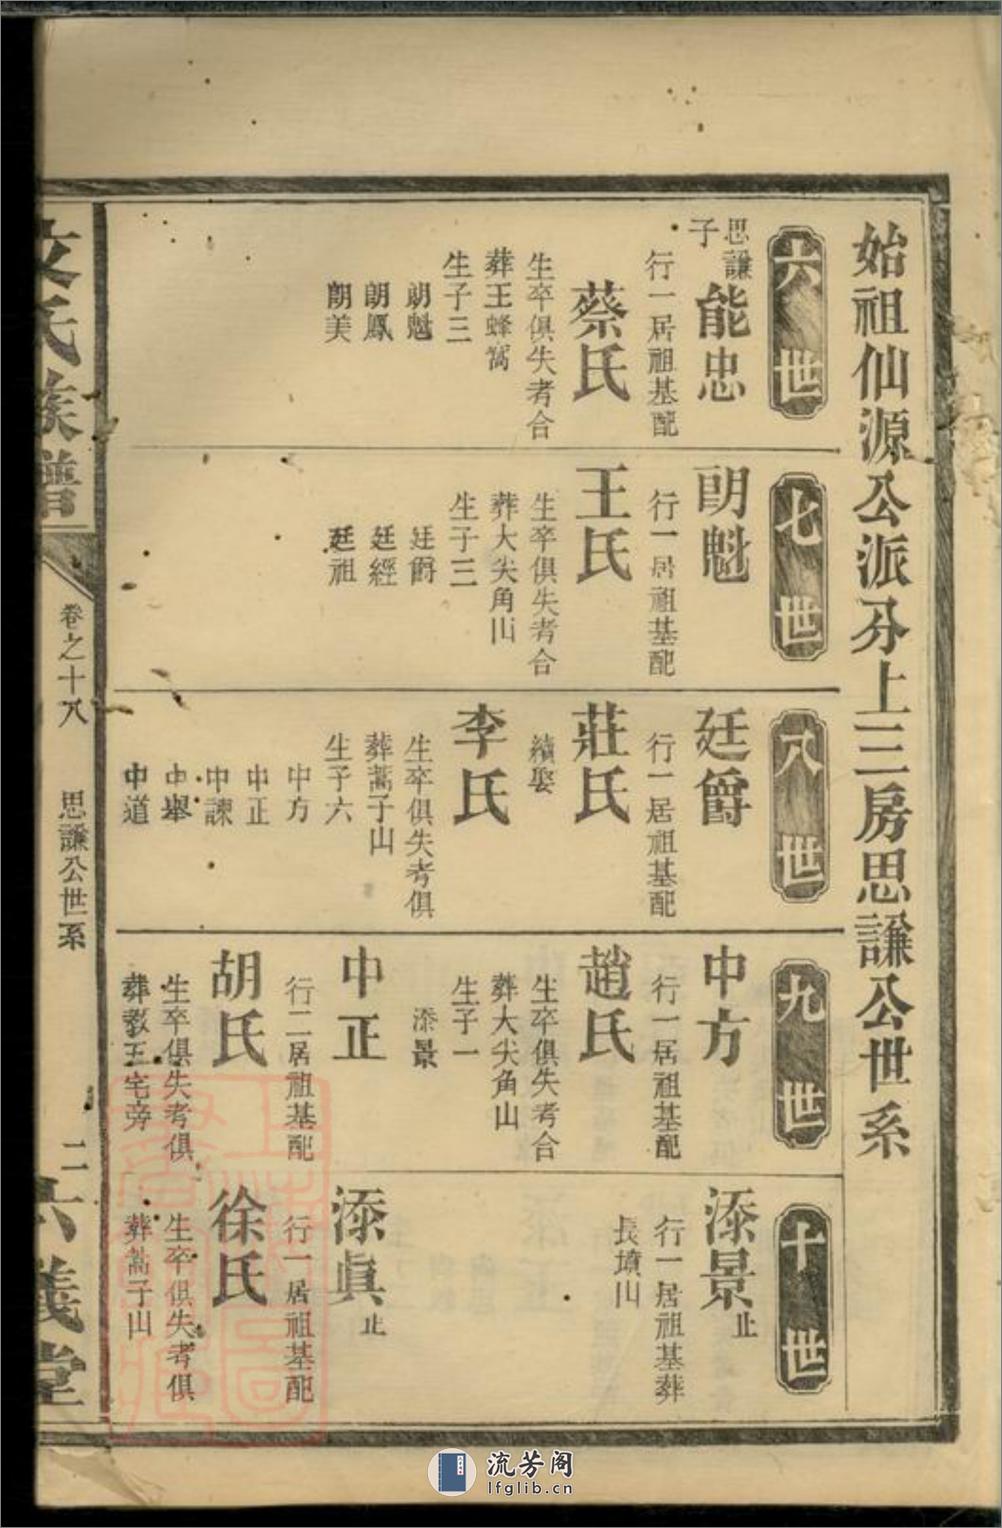 始祖仙源公派分上三房思謙公世系
六世
思謙
子
能忠
行一居祖基配
蔡氏
生卒俱失考合
葬王蜂窩
生子三
朗魁
朗鳳
朗美
七世
朗魁
行一居祖基配
王氏
生卒俱失考合
葬大尖角山
生子三
廷爵
廷經
廷祖
八世
廷爵
行一居祖基配
莊氏
續娶
李氏
生卒俱失考俱
葬蒿子山
生子六
中方
中正
中諫
中舉
中道
九世
中方
行一居祖基配
趙氏
生卒俱失考合
葬大尖角山
生子一
添景
中正
行二居祖基配
胡氏
生卒俱失考俱
葬教王宅旁
十世
添景止
行一居祖基葬
長墳山
添眞止
行一居祖基配
徐氏
生卒俱失考俱
葬蒿子山
文氏族譜
卷之十八
思謙公世系
二
六義堂
流芳阁
lfglib.cn.com